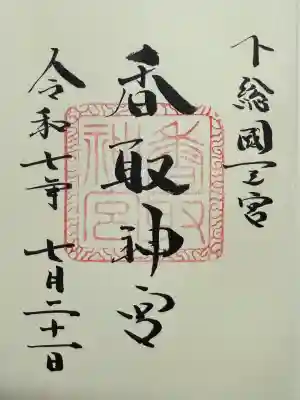 下総國一之宮
香取神宮
香取
神宮
令和七年 七月二十一日